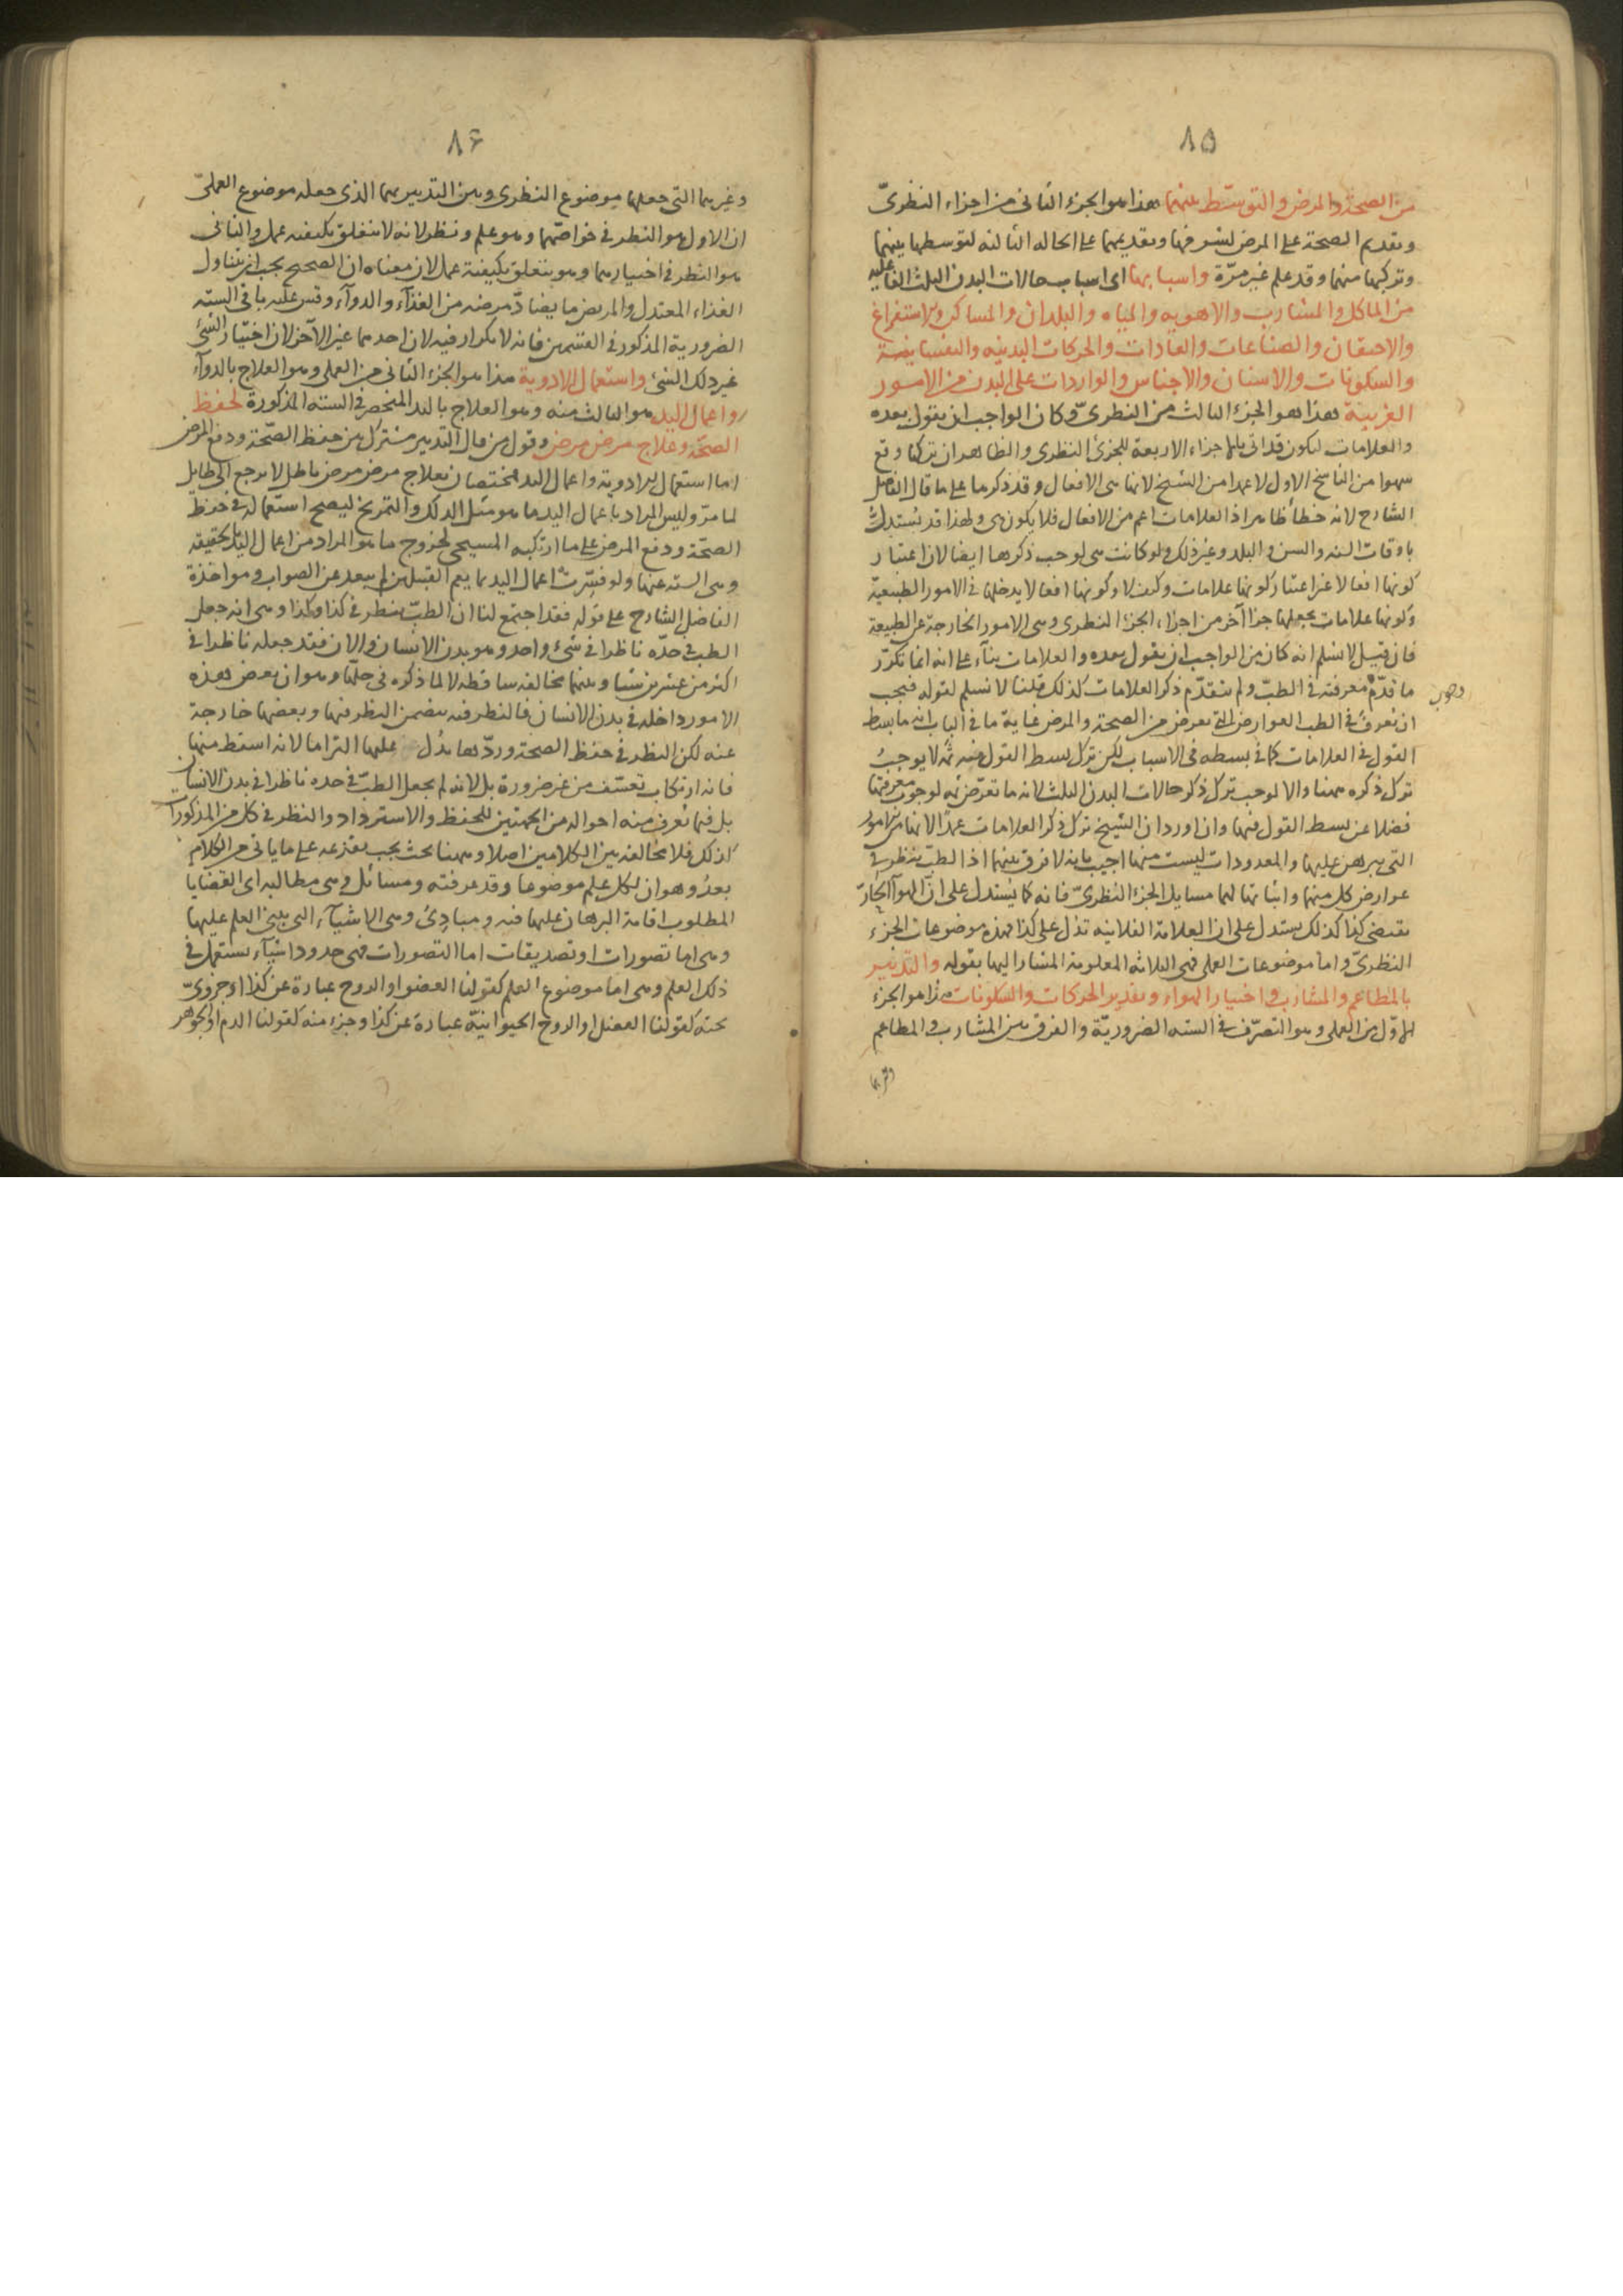 ٨٥
من الصحة والمرض والتوسط بينهما هذا هو الجزء الثانى من اجزاء النظرىّ
وتقديم الصحة على المرض لشرفها وتقديمهما على الحالة الثالثة لتوسطها بينهما
وتركبها منهما وقد علم غير مرّة واسبابها اى اسباب حالات البدن الثلث الفاعليه
من الماكل والمشارب والاهويه والمياه والبلدان والمساكن والاستفراغ
والاحتقان والصناعات والعادات والحركات البدنيه والنفسانية
والسكونات والاسنان والاجناس والواردات على البدن من الامور
الغريبة هذا هو الجزء الثالث من النظرىّ وكان الواجب ان يقول بعده
والعلامات ليكون قد اتى بالاجزاء الاربعة للجزئ النظرى والظاهر ان تركها وقع
سهوا من الناسخ الاول لا عمدا من الشيخ لانها هى الافعال وقد ذكرها على ما قال الفاضل
الشارح لانه خطأ ظاهر اذ العلامات اعم من الافعال فلا يكون هى ولهذا قد يستدل
باوقات السنه والسن والبلد وغير ذلك ولو كانت هى لوجب ذكرها ايضا لان اعتبار
كونها افعالا غير اعتبار كونها علامات وكيف لا وكونها افعالا يدخلها فى الامور الطبيعيّة
وكونها علامات يجعلها جزأ آخر من اجزاء الجزء النظرى وهى الامور الخارجة عن الطبيعة
فان قيل لا نسلم انه كان من الواجب ان يقول بعده والعلامات بناء على انه انما تكرّر
ما قدّم معرفته فى الطبّ ولم يتقدّم ذكر العلامات كذلك قلنا لا نسلم لقوله فيجب
وجوب
ان تعرف فى الطب العوارض التى تعرض من الصحة والمرض غاية ما فى الباب انه ما بسط
القول فى العلامات كما فى بسطه فى الاسباب لكن ترك بسط القول فيه ثمّه لا يوجبُ
ترك ذكره ههنا والا لوجب ترك ذكر حالات البدن الثلث لانه ما تعرّض ثمه لوجوب معرفتها
فضلا عن بسط القول فيها وان اورد ان الشيخ ترك ذكر العلامات عمدا لانها من الامور
التى يبرهن عليها والمعدودات ليست منها اجيب بانه لا فرق بينهما اذ الطبّ ينظر فى
عوارض كل منهما واثباتها لهما مسايل الجزء النظرىّ فانه كما يُستدل على انّ الهواء الحارّ
يقتضى كذا كذلك يستدل على ان العلامة الفلانيه تدل على كذا فهذه موضوعات الجزء
النظرىّ واما موضوعات العملى فهى الثلاثه المعلومة المشار اليها بقوله والتدبير
بالمطاعم والمشارب واختيار الهواء وتقدير الحركات والسكونات هذا هو الجزء
الاوّل من العملى وهو التصرّف فى السته الضروريّة والفرق بين المشارب والمطاعم
وغيرهما
٨٦
وغيرهما التى جعلها موضوع النظرى وبين التدبير بهما الذى جعله موضوع العملىّ
ان الاول هو النظر فى خواصّهما وهو علم ونظر لانه لا يتعلق بكيفيه عمل والثانى
هو النظر فى اختيارهما وهو يتعلق بكيفية عمل لان معناه ان الصحيح يجب ان يتناول
الغذاء المعتدل والمريض ما يضادّ مرضه من الغذآء والدوآء وقس عليه باقى الستّه
الضرورية المذكور فى القسمين فانه لا تكرار فيه لان احدهما غير الآخر لان اختيار الشئ
غير ذلك الشئ واستعمال الادوية هذا هو الجزء الثانى من العملى وهو العلاج بالدوآء
واعمال اليد هو الثالث منه وهو العلاج باليد المنحصر فى السته المذكورة لحفظ
الصحّة وعلاج مرض مرض وقول من قال التدبير مشترك بين حفظ الصّحّة ودفع المرض
اما استعمال الادوية واعمال اليد مختصان بعلاج مرض مرض باطل لا يرجع الى طايل
لما مرّ وليس المراد باعمال اليد ما هو مثل الدلك والتمريخ ليصح استعماله فى حفظ
الصحّة ودفع المرض على ما ارتكبه المسيحى لخروج ما هو المراد من اعمال اليد بالحقيقه
وهى السته عنها ولو فسّرت اعمال اليد بما يعم القبيلين لم يبعد عن الصواب ومواخذة
الفاضل الشارح على قوله فقد اجتمع لنا ان الطبّ ينظر فى كذا وكذا وهى انه جعل
الطب فى حدّه ناظرا فى شئ واحد وهو بدن الانسان والان فقد جعله ناظرا فى
اكثر من عشرين شيا وبينهما مخالفه ساقطه لا لما ذكره فى حلّها وهو ان بعض هذه
الامور داخله فى بدن الانسان فالنظر فيه يتضمن النظر فيها وبعضها خارجة
عنه لكن النظر فى حفظ الصحة وردّها يدُل عليها التزاما لانه اسقط منها
فانه ارتكاب تعسّف من غير ضرورة بل لانه لم يجعل الطبّ فى حده ناظرا فى بدن الانسان
بل فيما تُعرف منه احواله من الجهتين للحفظ والاسترداد والنظر فى كل من المذكورات
كذلك فلا مخالفة بين الكلامين اصلا وههنا بحث يجب تقديمه على ما ياتى من الكلام
بعدُ وهو ان لكل علم موضوعا وقد عرفته ومسائل وهى مطالبه اى القضايا
المطلوب اقامة البرهان عليها فيه ومبادئ وهى الاشيآء التى يبنى العلم عليها
وهى اما تصورات او تصديقات اما التصورات فهى حدود اشيآء يستعمل فى
ذلك العلم وهى اما موضوع العلم كقولنا العضو او الروح عبارة عن كذا او جزوىّ
تحته كقولنا العضل او الروح الحيوانيّة عبارة عن كذا وجزء منه كقولنا الدم او الجوهر